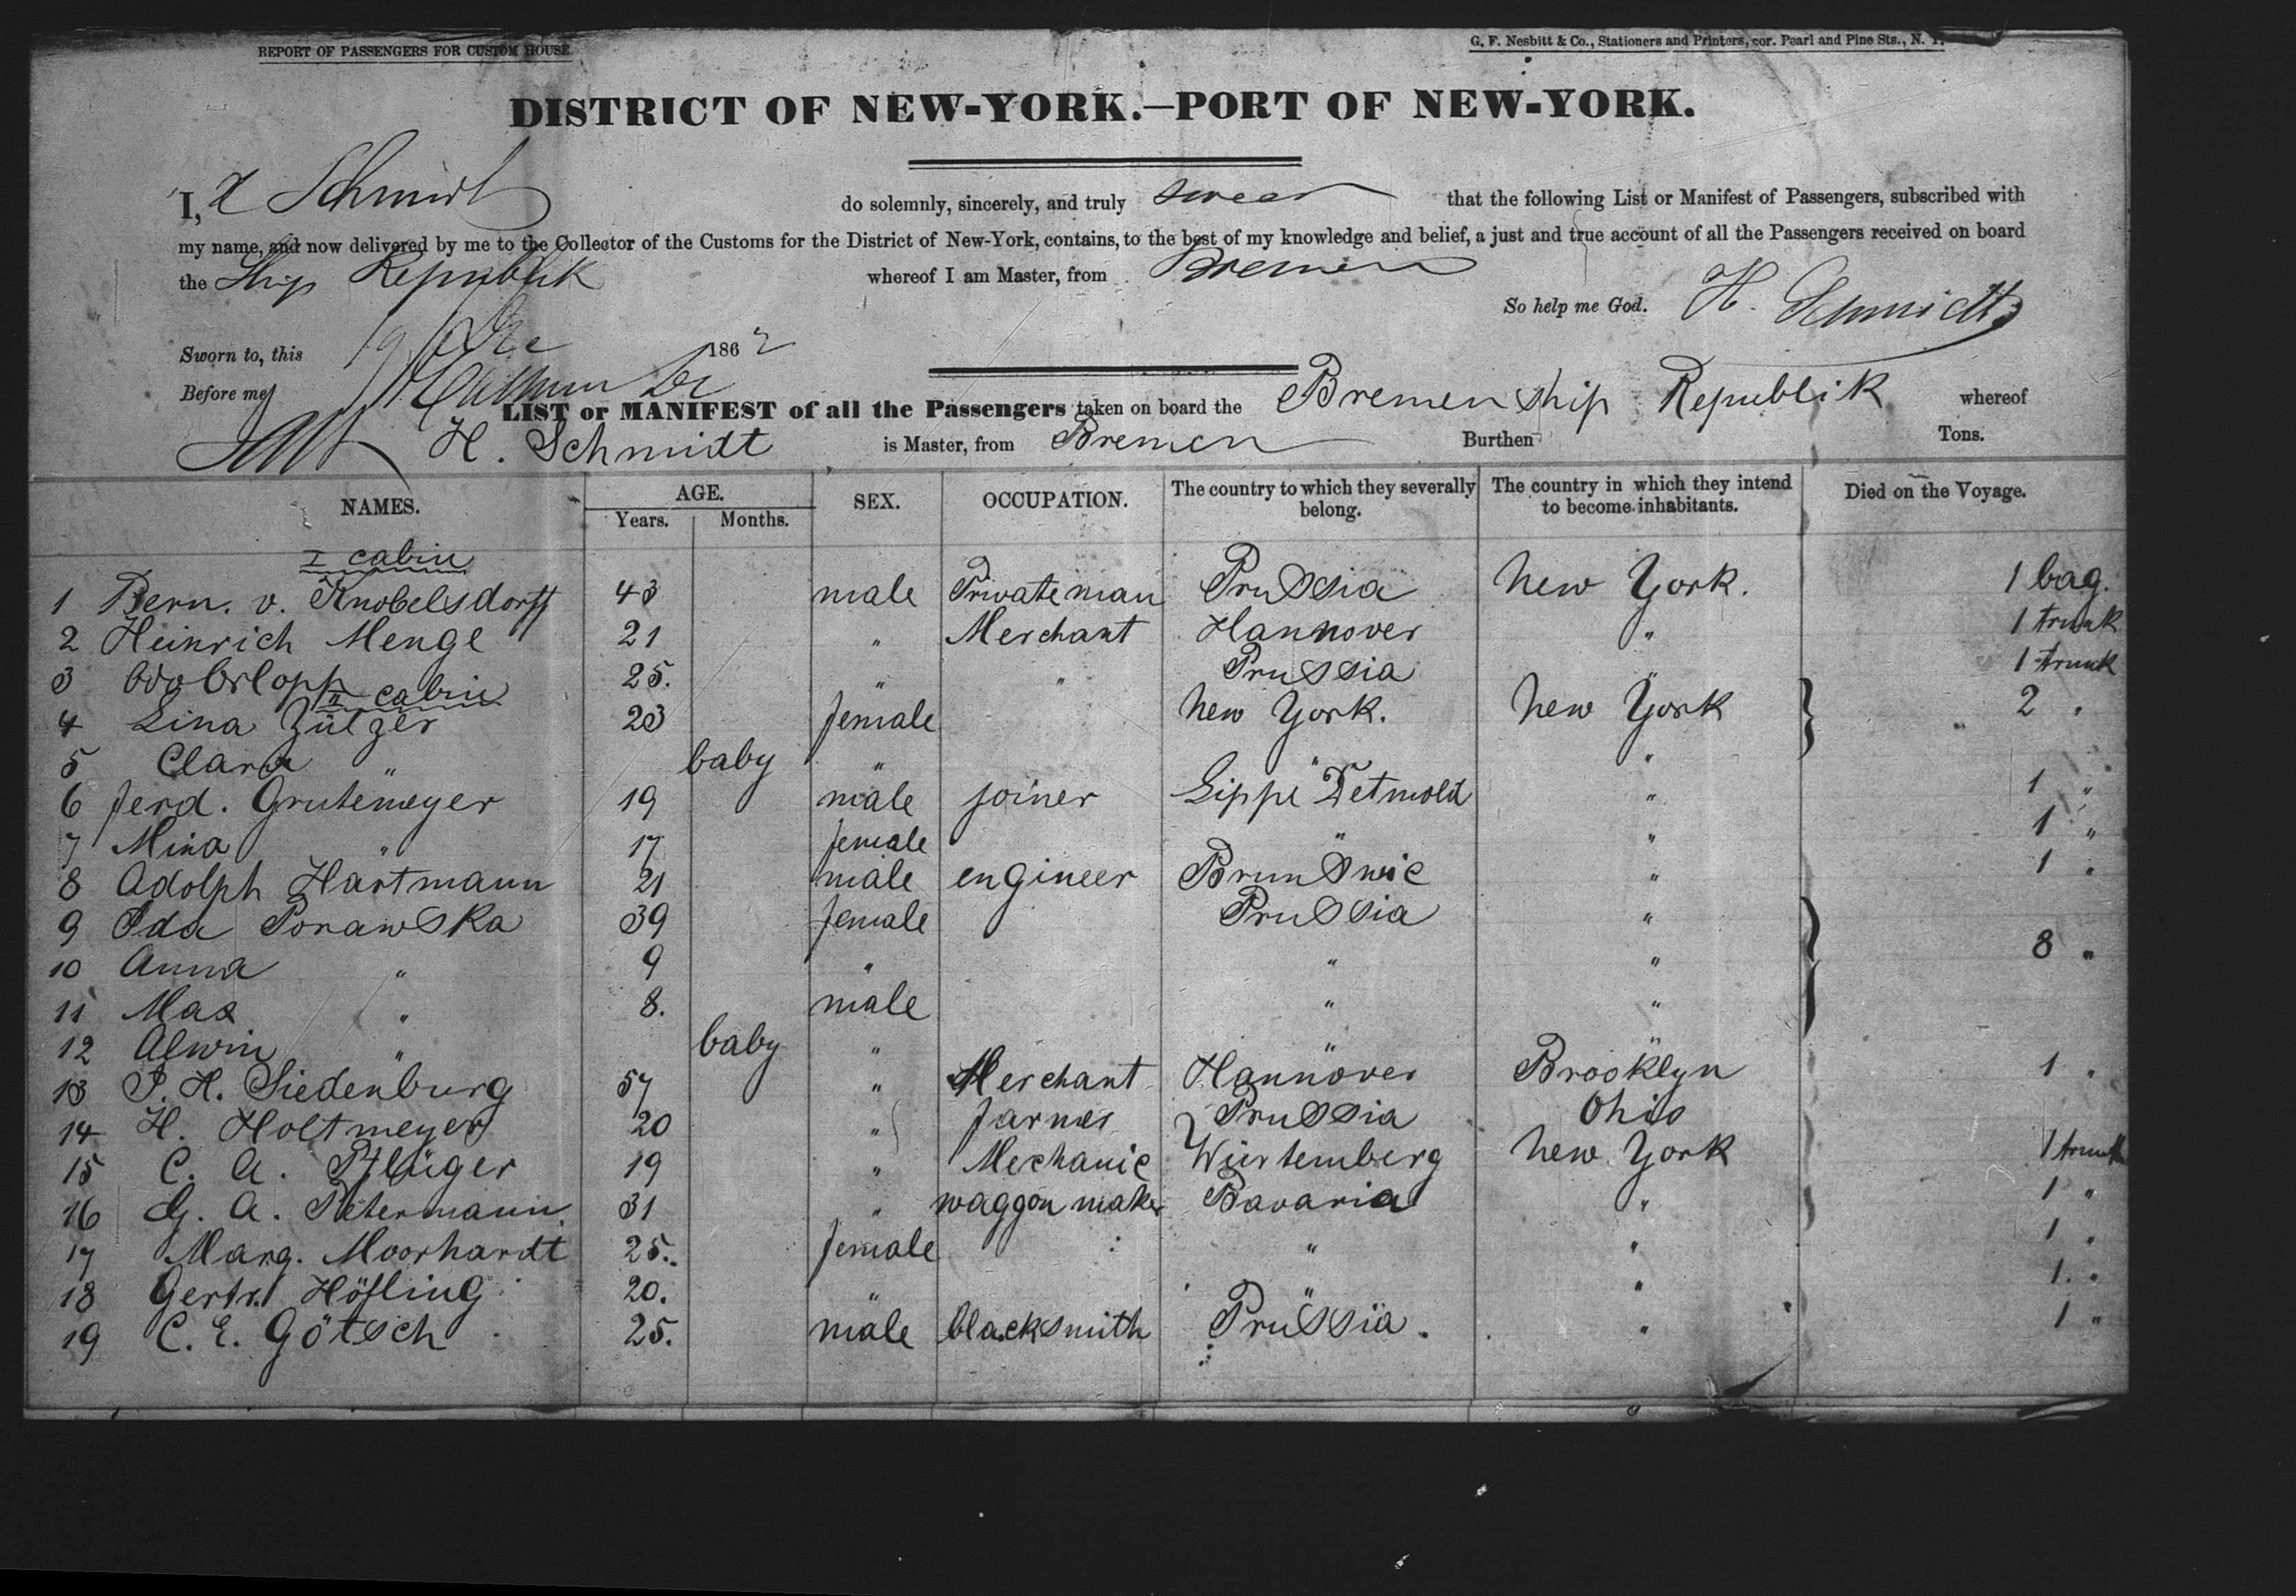 REPORT OF PASSENGERS FOR CUSTOM HOUSE.
G. F. Nesbitt & Co., Stationers and Printers, cor. Pearl and Pine Sts., N. Y.
DISTRICT OF NEW-YORK.—PORT OF NEW-YORK.
I, H Schmidt do solemnly, sincerely, and truly swear that the following List or Manifest of Passengers, subscribed with
my name, and now delivered by me to the Collector of the Customs for the District of New-York, contains, to the best of my knowledge and belief, a just and true account of all the Passengers received on board
the Ship Republik whereof I am Master, from Bremen
So help me God. H. Schmidt
Sworn to, this 19 1862
Before me
LIST or MANIFEST of all the Passengers taken on board the Bremen ship Republik whereof
H. Schmidt is Master, from Bremen Burthen Tons.
NAMES. AGE. Years. Months. SEX. OCCUPATION. The country to which they severally belong. The country in which they intend to become inhabitants. Died on the Voyage.
I cabin
1 Bern. v. Knobelsdorff 43 male Privateman Prussia New York. 1 bag.
2 Heinrich Menge 21 " Merchant Hannover " 1 trunk
3 Orlopp 25. " " Prussia " 1 trunk
II cabin
4 Lina Zülzer 23 female New York. New York 2 "
5 Clara " baby " " "
6 Ferd. Grutemeyer 19 male joiner Lippe Detmold " 1 "
7 Mina " 17 female " " 1 "
8 Adolph Hartmann 21 male engineer Brunswic " 1 "
9 Ida Porawska 39 female Prussia "
10 Anna " 9 " " " 8 "
11 Max " 8. male " "
12 Alwin " baby " " "
13 P. H. Siedenburg 57 " Merchant Hannover Brooklyn 1 "
14 H. Holtmeyer 20 " farmer Prussia Ohio
15 C. A. Pflüger 19 " Mechanic Würtemberg New York 1 trunk
16 G. A. Petermann 31 " waggon maker Bavaria " 1 "
17 Marg. Moorhardt 25. female " " 1 "
18 Gertr. Höfling 20. " " " 1. "
19 C. E. Götsch 25. male blacksmith Prussia. " 1 "